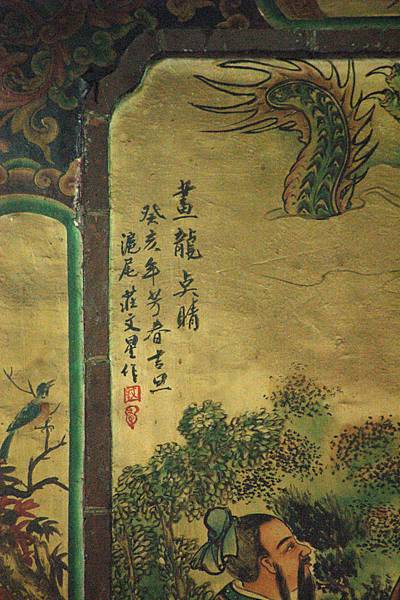 畫龍点睛
癸亥年芳春吉旦
滬尾莊文星作